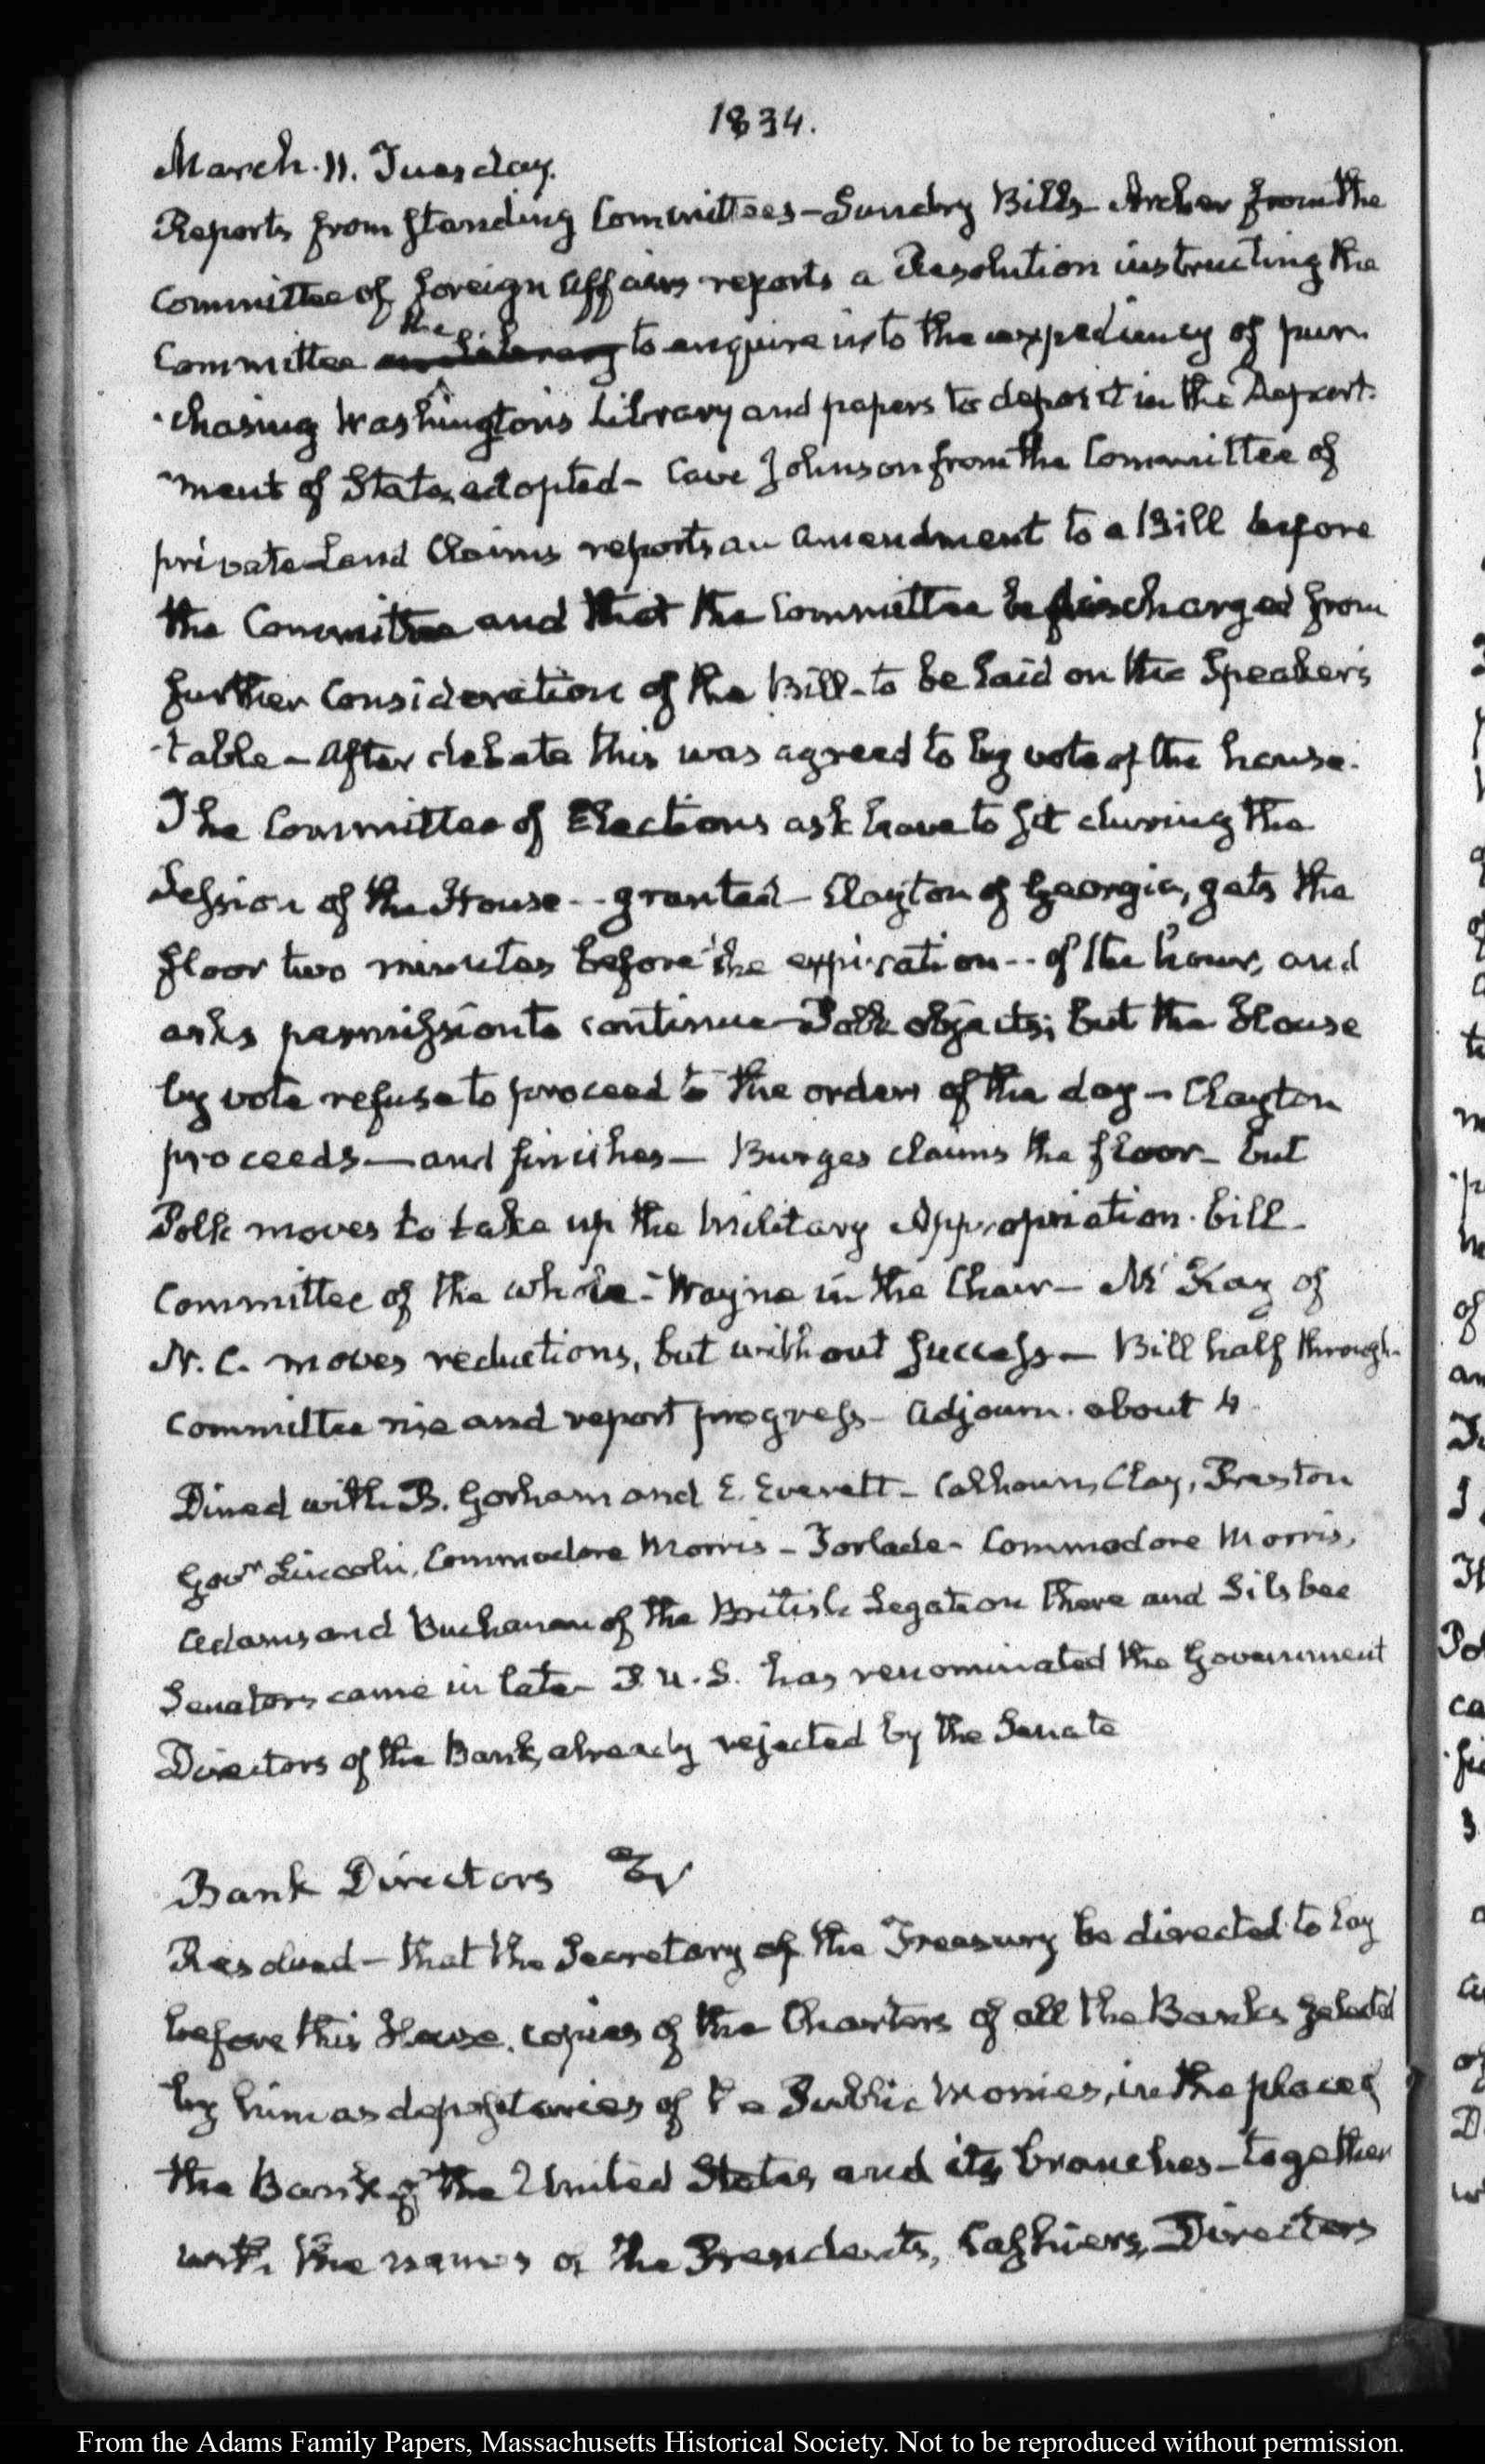 1834.
March. 11. Tuesday.
Reports from Standing Committees – Sundry Bills – Archer from the
Committee of Foreign Affairs reports a Resolution instructing the
Committee on the Library to enquire into the expediency of pur-
chasing Washington's Library and papers to deposit in the Depart-
ment of State, adopted – Cave Johnson from the Committee of
private Land Claims reports an amendment to a Bill before
the Committee and that the Committee be discharged from
further Consideration of the Bill – to be laid on the Speaker's
table – After debate this was agreed to by vote of the house.
The Committee of Elections ask leave to sit during the
Session of the House – granted – Clayton of Georgia, gets the
floor two minutes before the expiration of the hour, and
asks permission to continue – Polk objects; but the House
by vote refuse to proceed to the orders of the day – Clayton
proceeds – and finishes – Burges claims the floor – but
Polk moves to take up the Military Appropriation bill –
Committee of the whole – Wayne in the Chair – McKay of
N.C. moves reductions, but without success – Bill half through –
Committee rise and report progress – Adjourn. about 4.
Dined with B. Gorham and E. Everett – Calhoun, Clay, Preston
Govr. Lincoln, Commodore Morris – Torlade – Commodore Morris,
Adams and Buchanan of the British Legation there and Silsbee
Senators came in late – P.U.S. has renominated the Government
Directors of the Bank, already rejected by the Senate
Bank Directors
Resolved – that the Secretary of the Treasury be directed to lay
before this House, copies of the Charters of all the Banks selected
by him as depositaries of the Public Monies, in the place of
the Bank of the United States and its branches – together
with the names of the Presidents, Cashiers, Directors
From the Adams Family Papers, Massachusetts Historical Society. Not to be reproduced without permission.